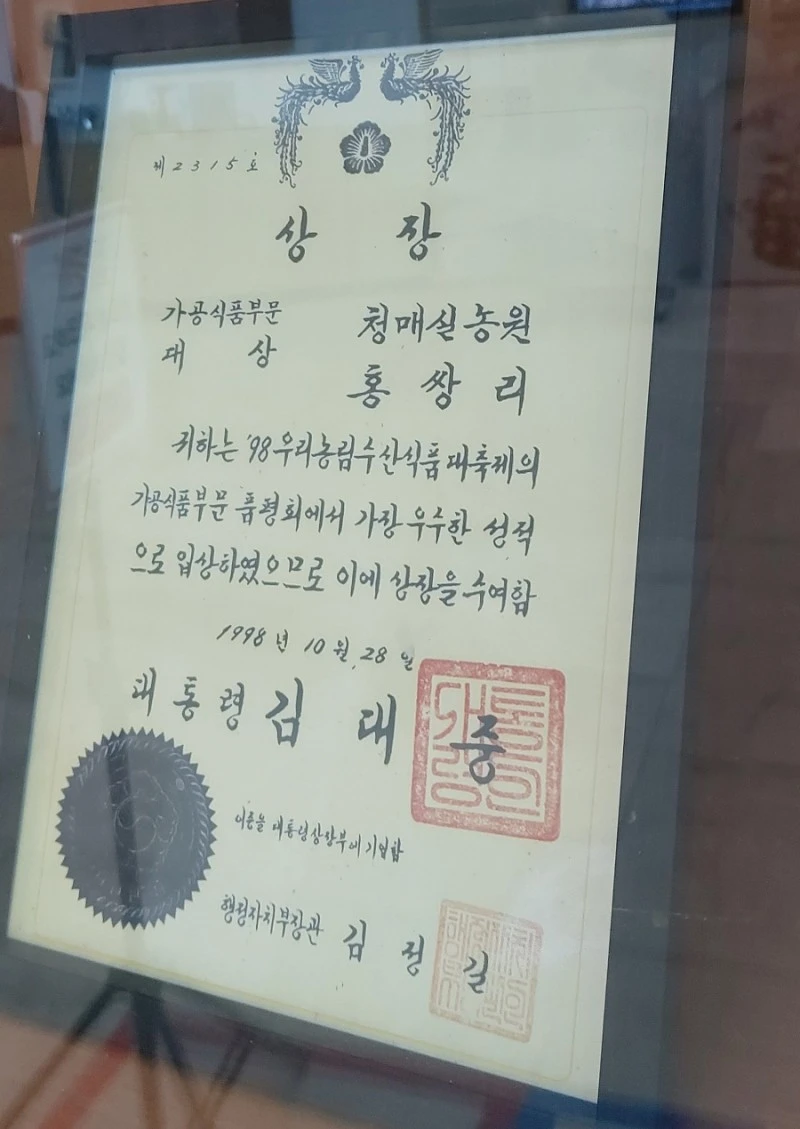 제2315호
상 장
가공식품부문 청매실농원
대 상 홍 쌍 리
귀하는 '98우리농림수산식품대축제의
가공식품부문 품평회에서 가장 우수한 성적
으로 입상하였으므로 이에 상장을 수여함
1998년 10월 28일
대통령 김 대 중
이름을 대통령상장부에 기입함
행정자치부장관 김 정 길